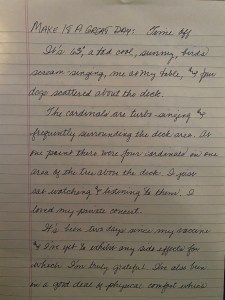 Make It A Great Day: Time Off
It's 63°, a tad cool, sunny, birds
scream-singing, me at my table, & four
dogs scattered about the deck.
The cardinals are turbo-singing &
frequently surrounding the deck area. At
one point there were four cardinals in one
area of the tree above the deck. I just
sat watching & listening to them. I
loved my private concert.
It's been two days since my vaccine
& I've yet to exhibit any side effects for
which I'm truly grateful. I've also been
in a good deal of physical comfort which